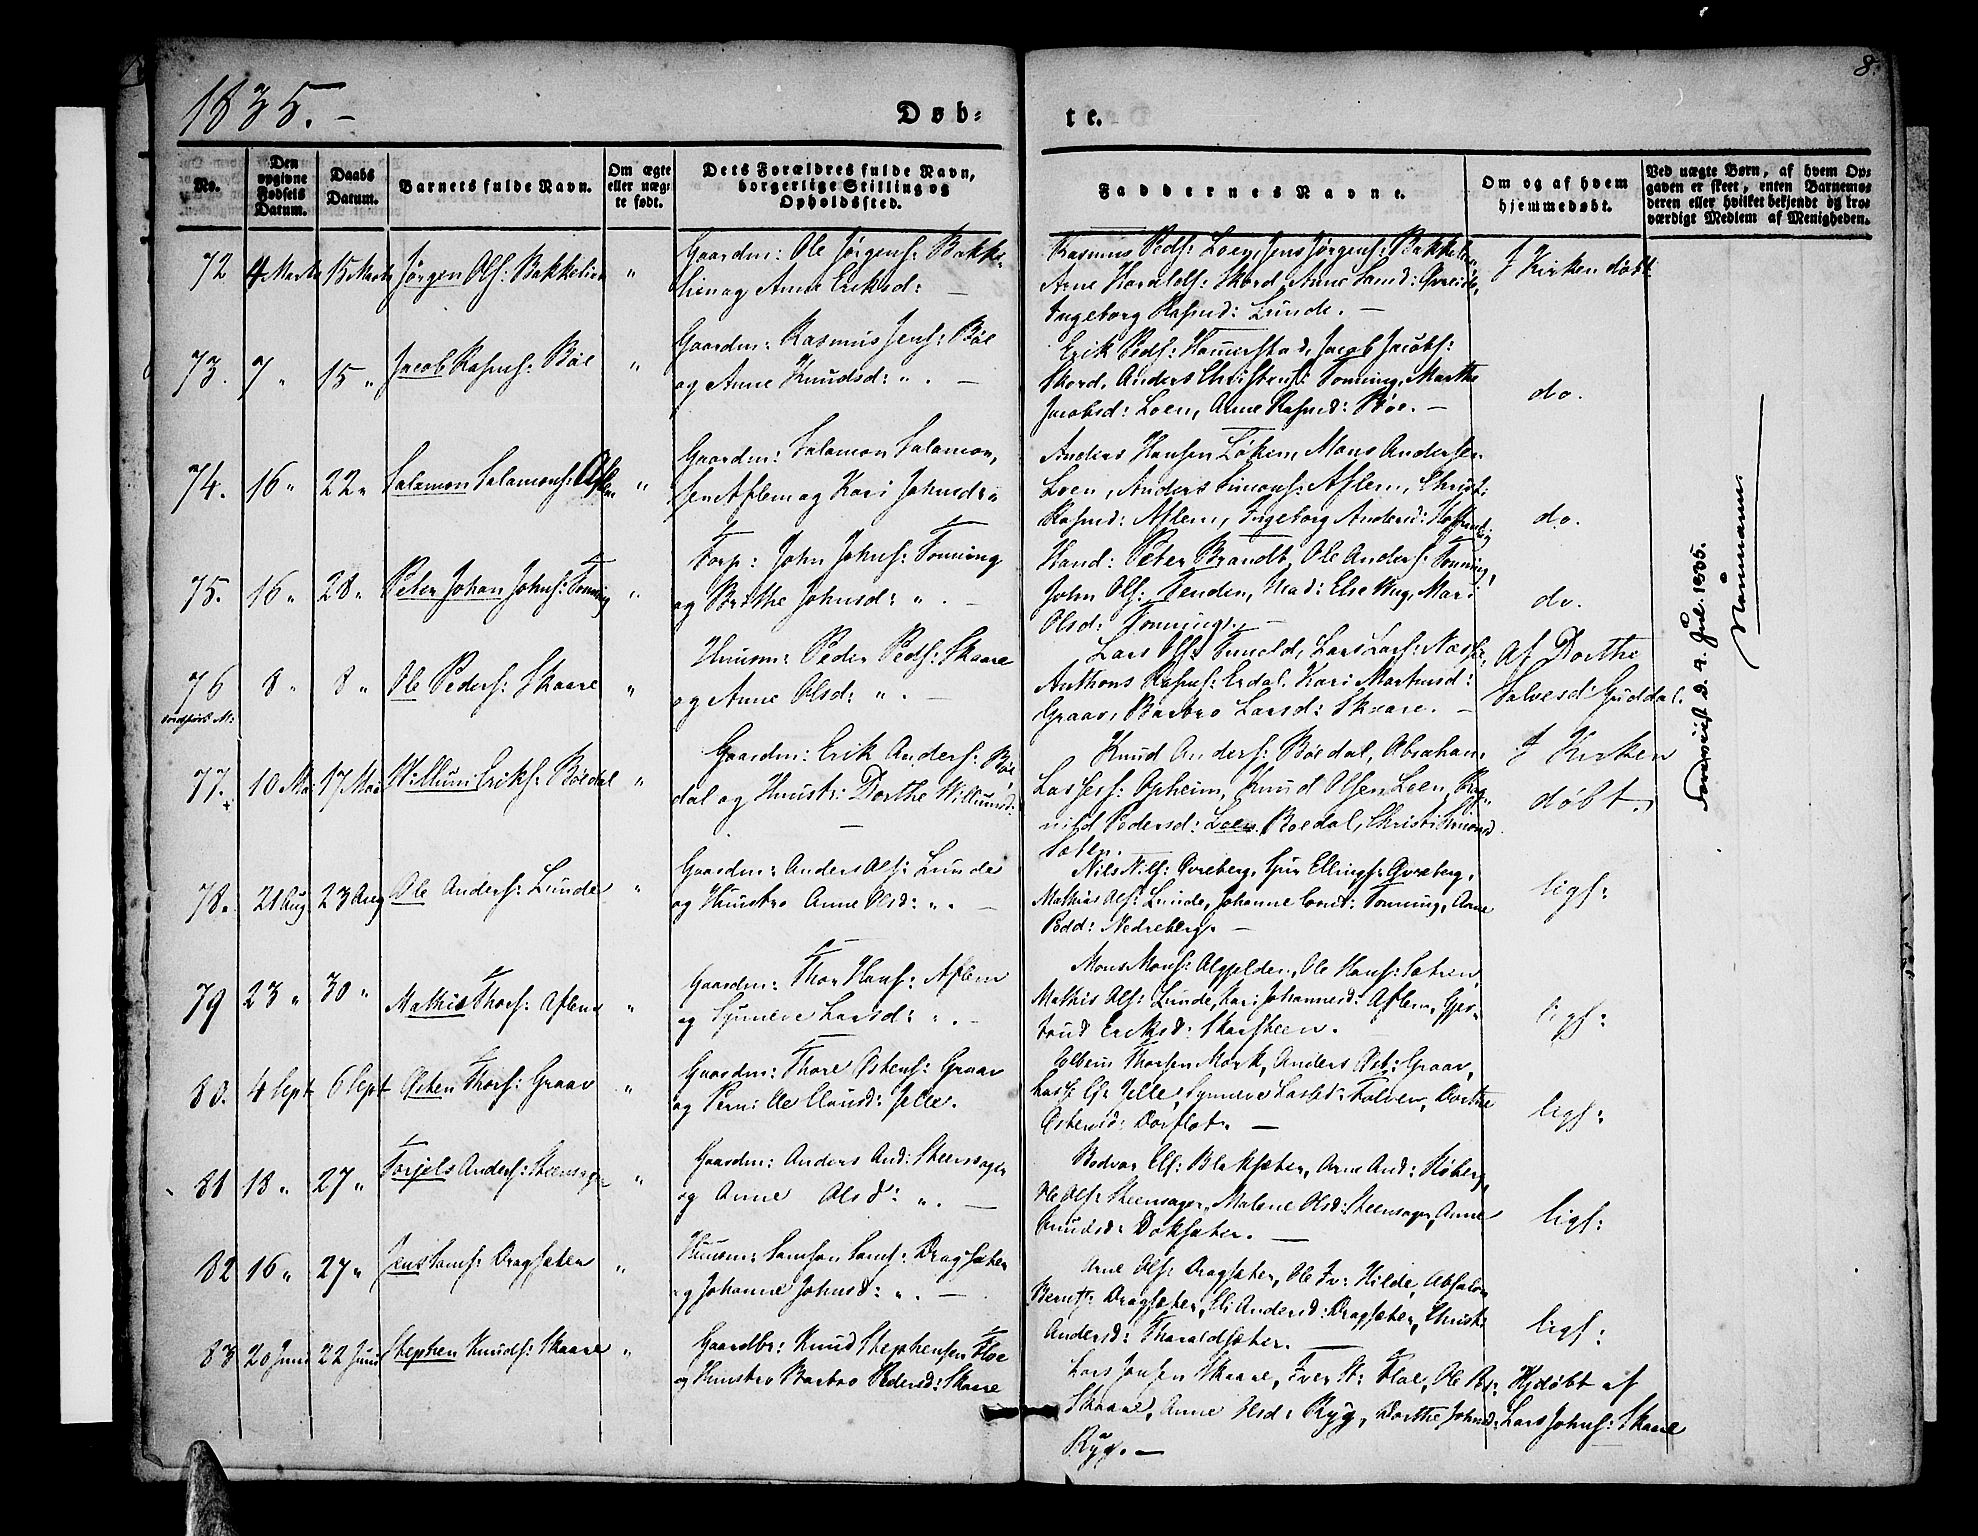 8.
1835.-
Døb-
te.
No.
Den opgivne Fødsels Datum.
Daabs Datum.
Barnets fulde Navn.
Om ægte eller uæg-te født.
Dets Forældres fulde Navn, borgerlige Stilling og Opholdssted.
Faddernes Navne.
Om og af hvem hjemmedøbt.
Ved uægte Børn, af hvem Op-gaven er skeet, enten Barnemo-deren eller hvilket bekjendt og tro-værdigt Medlem af Menigheden.
72 4 Marts 15 Marts Jørgen Ols: Bakkelien "
Gaardm: Ole Jørgens: Bakke-
lien og Anne Eriksd: —
Rasmus Peds: Loen, Jens Jørgens: Bakkelien,
Arne Haralds: Skord, Anne
Ingeborg Rasmd: Lunde. —
I Kirken døbt
73. 7 " 15 " Jacob Rasms: Bøe "
Gaardm: Rasmus Jens: Bøe
og Anne Knudsd: " . —
Erik Peds: Jacob Jacobs:
Skord, Anders Christens: Tonning, Marthe
Jacobsd: Loen, Anne Rasmd: Bøe. —
do.
74. 16 " 22 " Salamon Salamons: Aflem "
Gaardm: Salamon Salamon,
sen Aflem og Kari Johnsd: "
Anders Hansen Løken, Mons Andersen
Loen, Anders Simons: Aflem, Christi
Rasmd: Aflem, Ingeborg Andersd:
do.
75. 16 " 28 " Peter Johan Johns: Tonning "
Forp: John Johns: Tonning
og Brithe Johnsd: " . —
Hand: Peter Brandt, Ole Anders: Tonning,
John Ols: Tenden, Mad: Else Mari
Olsd: Tonning. —
do.
76 8 " 8 " Ole Peders: Skaare "
Huusm: Peder Peds: Skaare
og Anne Olsd: " . —
Lars Ols: Lars Lars: Nesse,
Anthons Rasms: Erdal, Kari Martinsd:
Graav, Barbro Larsd: Skaare. —
Af Dorthe
Salvesd: Guddal.
77. 10 Mai 17 Mai Willum Eriks: Bødal "
Gaardm: Erik Anders: Bø-
dal og Huustr: Dorthe Willumsd:
—
Knud Anders: Bødal, Abraham
Lasses: Opheim, Knud Olsen Loen, Rag-
nild Pedersd: Loen, Bødal, Christi Simonsd
Sæten.
I Kirken
døbt.
78. 21 Aug 23 Aug Ole Anders: Lunde "
Gaardm: Anders Ols: Lunde
og Huustro Anne Olsd: " . —
Nils Nils: Øvreberg, Guri Ellings: Øvreberg,
Mathias Ols: Lunde, Johanne Tonning, Anne
Pedd: Nedreberg. —
ligs:
79 23 " 30 " Mathis Thors: Aflem "
Gaardm: Thor Hans: Aflem
og Synneve Larsd: " . —
Mons Mons: Ole Hans: Sætren,
Mathis Ols: Lunde, Kari Johannesd: Aflem, Gjer-
trud Eriksd: Skarsteen.
ligs:
80. 4 Sept 6 Sept Østen Thors: Graav "
Gaardm: Thore Østens: Graav
og Pernille Clausd: Jelle.
Elling Thorsen Mork, Anders Øst: Graav,
Lasse Cl: Jelle, Synneve Lassed: Folven, Dorthe
Østensd: Dorflot. —
ligs:
81 18 " 27 " Torjels Anders: Steensager "
Gaardm: Anders And: Steensager
og Anne Olsd: " . —
Bodvar Els: Blaksæter, Arne And: Høberg,
Ole Ols: Steensager, Malene Olsd: Steensager, Anne
Knudsd: Doksæter. —
ligs:
82 16 " 27 " Jens Sams: Dragsæter "
Huusm: Samson Sams: Dragsæter
og Johanne Johnsd: " . —
Arne Ols: Dragsæter, Ole Iv: Hilde, Absalon
Bernts: Dragsæter, Eli Andersd: Dragsæter, Christi
Andersd: Tharaldsæter. —
ligs:
83 20 Juni 22 Juni Stephen Knuds: Skaare "
Gaardbr: Knud Stephensen Floe
og Huustro Barbro Pedersd: Skaare
Lars Jonsen Skaare, Iver St: Floe, Ole Ped:
Skaare, Anne Olsd: Ryg, Dorthe Johnsd:
Ryg. —
Hjdøbt af
Lars Johns: Skaare
d. 9. Jul. 1835.
Normann.